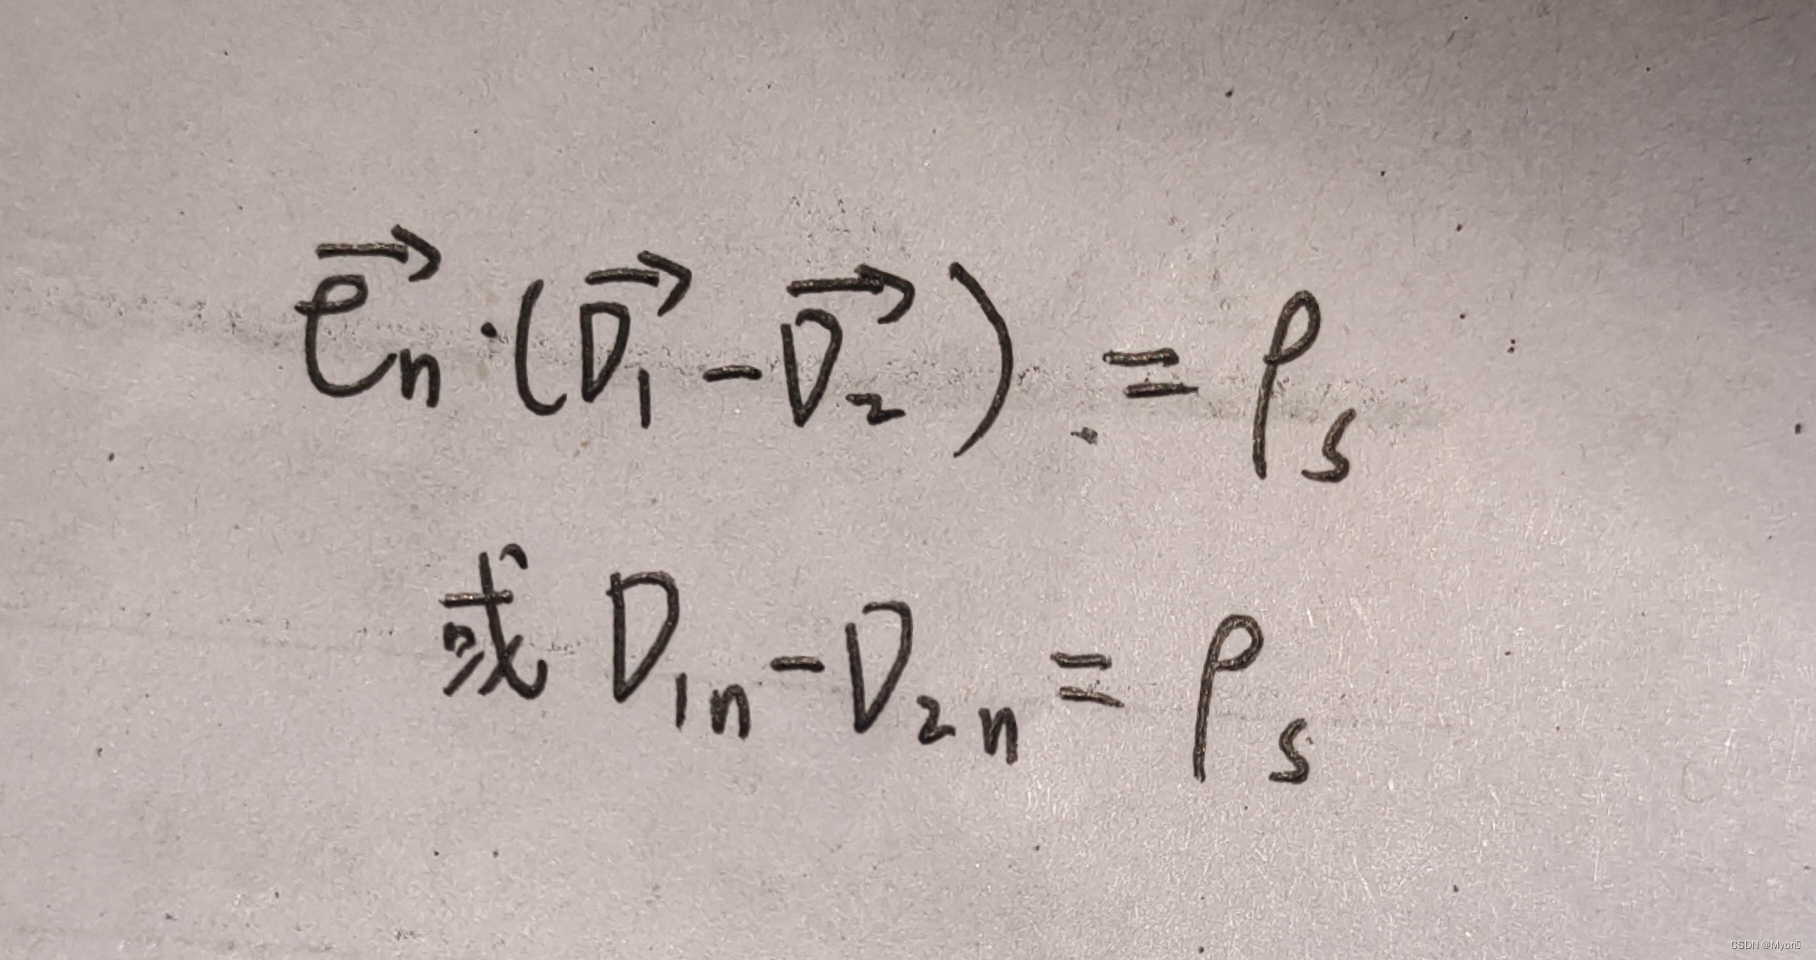 $\vec{e_n} \cdot (\vec{D_1} - \vec{D_2}) = \rho_s$
或 $D_{1n} - D_{2n} = \rho_s$
CSDN @Myon